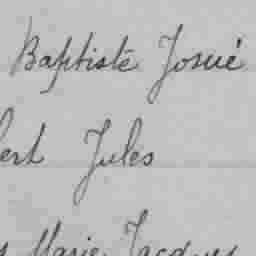 Baptiste Josué
Jules
Marie Jacques